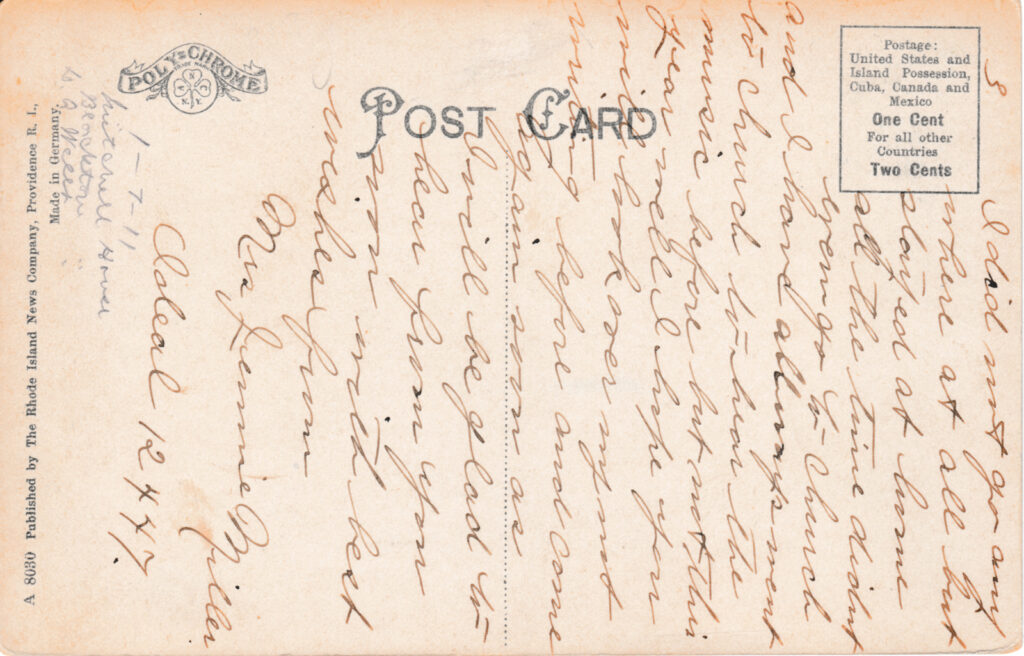 POLY-CHROME
POST CARD
Postage:
United States and
Island Possession,
Cuba, Canada and
Mexico
One Cent
For all other
Countries
Two Cents
A 8030 Published by The Rhode Island News Company, Providence R. I.,
Made in Germany.
3
I did not go any
where at all but
stayed at home
all the time didnt
even go to church
and I have allways went
to church to hear the
music before but not this
year well I hope you
will look over my not
writing before and come
again soon as
I will be glad to
hear from you
soon with best
wishes from
Mrs Jennie Miller
12447
1-7-11